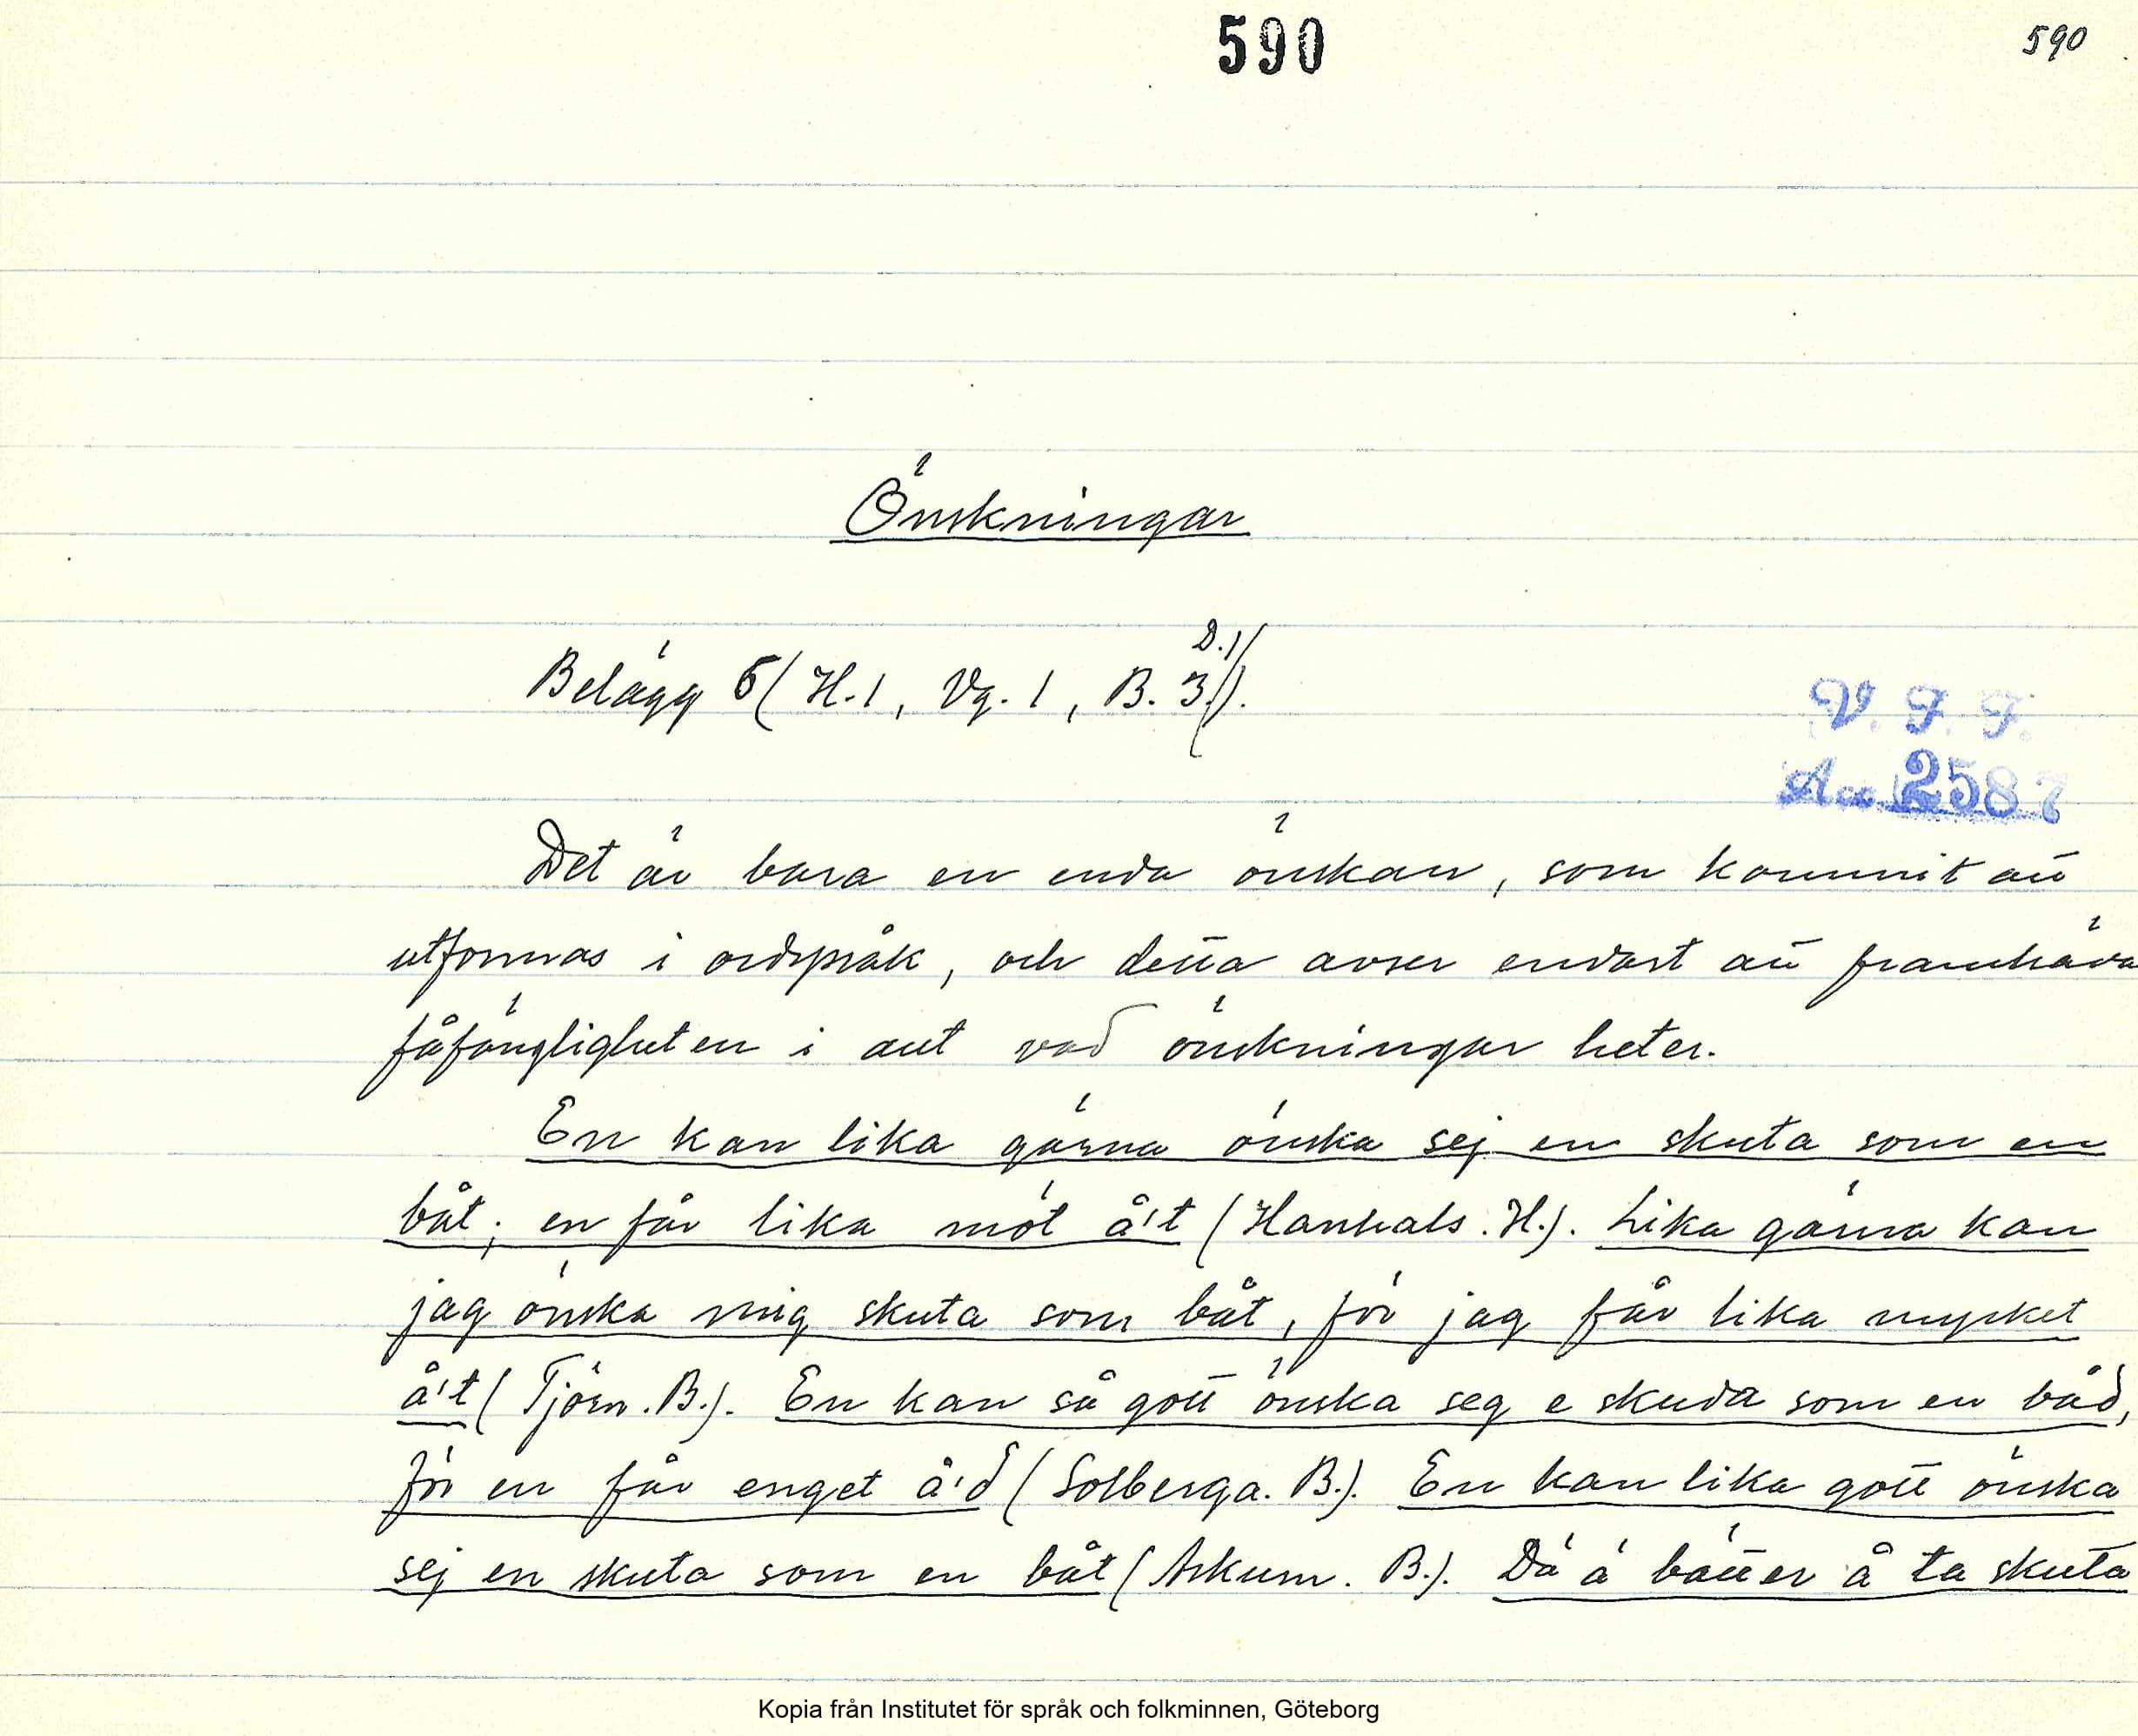 590
590
Önskningar
Belägg 6 (H. 1, Vg. 1, B. 3, D. 1).
V. F. F.
Acc. 2587
Det är bara en enda önskan, som kommit att
utformas i ordspråk, och detta avser endast att framhäva
fåfängligheten i allt vad önskningar heter.
En kan lika gärna önska sej en skuta som en
båt; en får lika möt å't (Hanhals. H.). Lika gärna kan
jag önska mig skuta som båt, för jag får lika mycket
å't (Tjörn. B.). En kan så gott önska seg e skuda som en båd,
för en får enget å'd (Solberga. B.). En kan lika gott önska
sej en skuta som en båt (Askum. B.). Dä ä bätter å ta skuta
Kopia från Institutet för språk och folkminnen, Göteborg